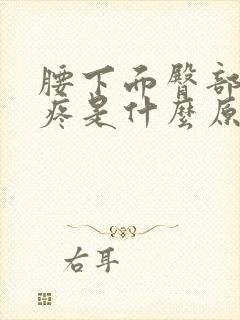 腰下而臀部
疼是什麽原
右耳